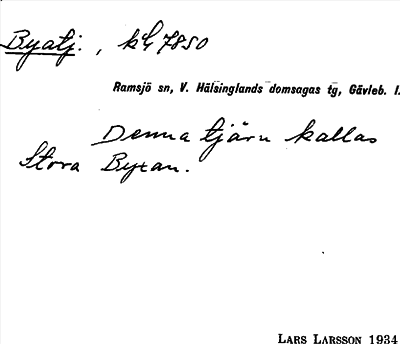 Byatj., kL 7850
Ramsjö sn, V. Hälsinglands domsagas tg, Gävleb. l.
Denna tjärn kallas
Stora Byxan.
LARS LARSSON 1934